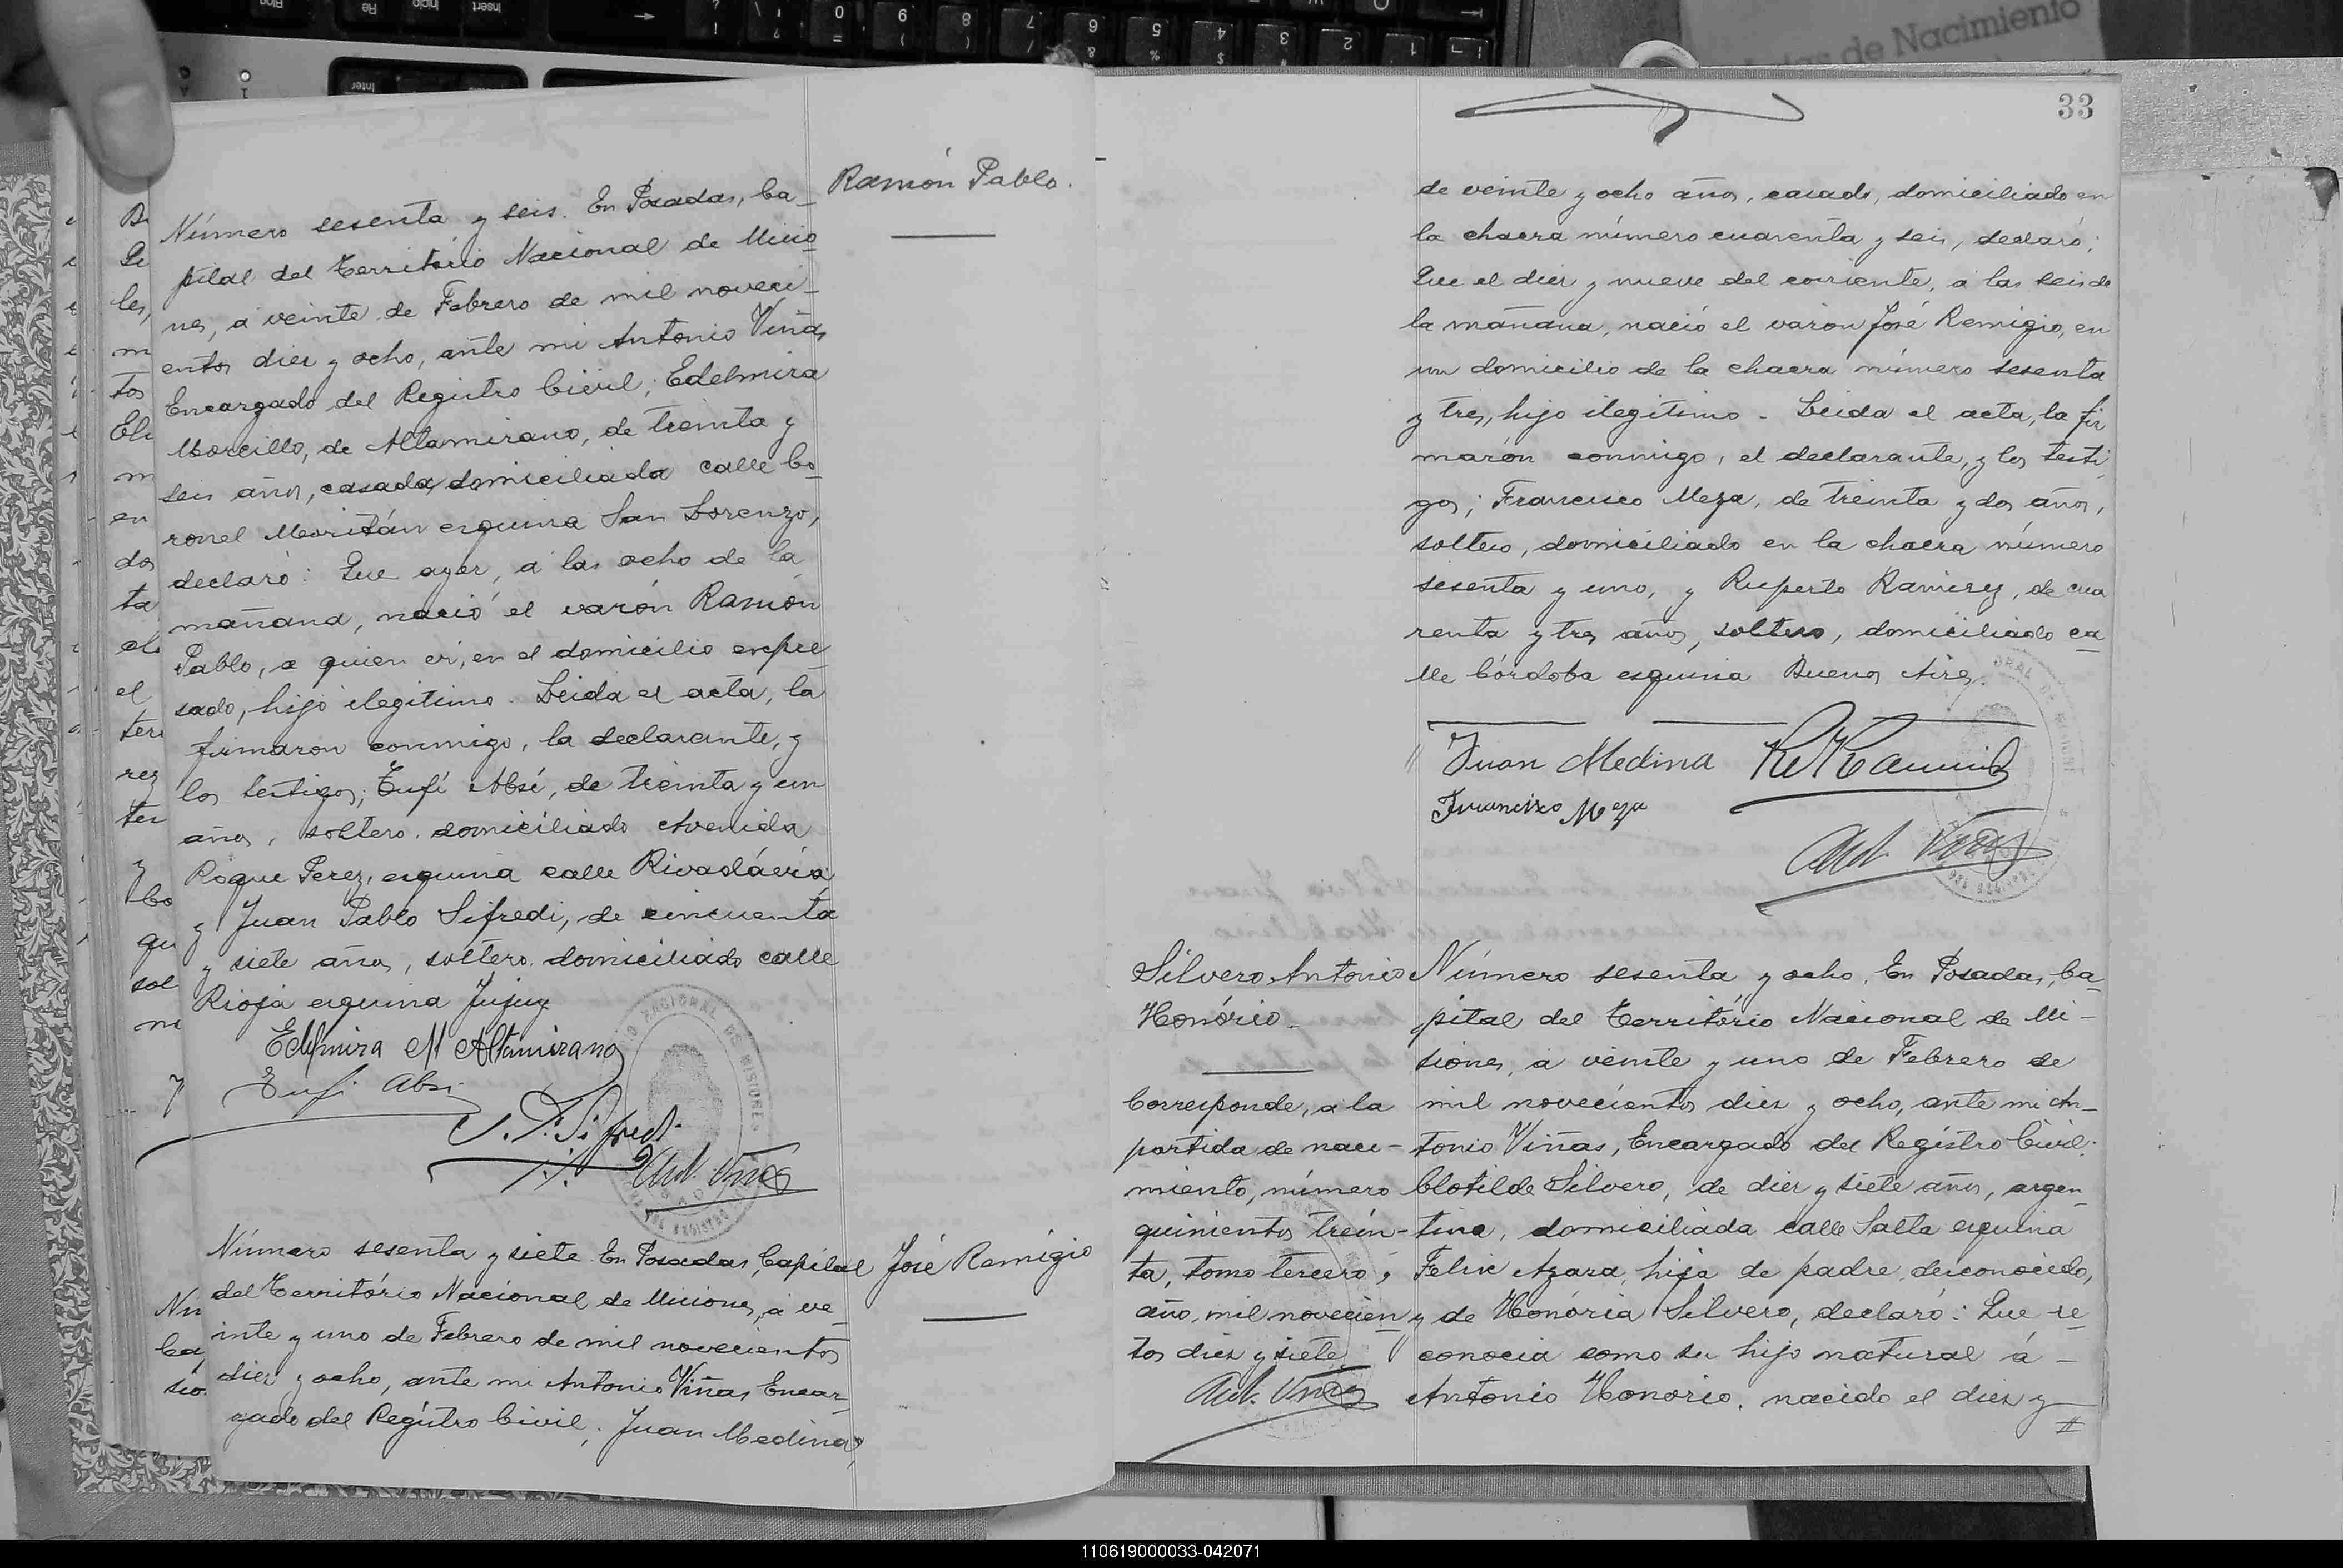 Ramón Pablo.
Número sesenta y seis. En Posadas, Ca_
pital del Território Nacional de Misio_
nes, a veinte de Febrero de mil noveci_
entos diez y ocho, ante mi Antonio Viñas
Encargado del Registro Civil; Edelmira
Morcillo, de Altamirano, de treinta y
seis años, casada, domiciliada calle Co_
ronel esquina San Lorenzo,
declaró: Que ayer, a las ocho de la
mañana, nació el varón Ramón
Pablo, a quien vi, en el domicilio expre_
sado, hijo ilegitimo. Leida el acta, la
firmaron conmigo, la declarante, y
los testigos; Eufi Absi, de treinta y un
años, soltero, domiciliado Avenida
Roque Perez, esquina calle Rivadávia
y Juan Pablo Sifredi, de cincuenta
y siete años, soltero, domiciliado calle
Rioja esquina Jujuy
Edelmira M Altamirano
Eufi Absi
J. P. Sifredi
Ant. Viñas
José Remigio
Número sesenta y siete En Posadas, Capital
del Território Nacional de Misiones, a ve_
inte y uno de Febrero de mil novecientos
diez y ocho, ante mi Antonio Viñas Encar_
gado del Registro Civil; Juan Medina,
33
de veinte y ocho años, casado, domiciliado en
la chacra número cuarenta y seis, declaró:
Que el diez y nueve del corriente, a las seis de
la mañana, nació el varon José Remigio, en
un domicilio de la chacra número sesenta
y tres, hijo ilegitimo. Leida el acta, la fir
marón conmigo, el declarante, y los testi
gos; Francisco Meza, de treinta y dos años,
soltero, domiciliado en la chacra número
sesenta y uno, y Ruperto Ramirez, de cua
renta y tres años, soltero, domiciliado ca_
lle Córdoba esquina Buenos Aires.
Juan Medina
Francisco Meza
Ant. Viñas
Silvero, Antonio
Honório.
Corresponde, a la
partida de naci-
miento, número
quinientos trein-
ta, tomo tercero,
año, mil novecien_
tos diez y siete
Ant. Viñas
Número sesenta y ocho. En Posadas, Ca_
pital del Território Nacional de Mi-
siones, a veinte y uno de Febrero de
mil novecientos diez y ocho, ante mi An_
tonio Viñas, Encargado del Registro Civil;
Clotilde Silvero, de diez y siete años, argen_
tina, domiciliada calle Salta esquina
Felix Azara, hija de padre desconocido,
y de Honória Silvero, declaró: Que re_
conocia como su hijo natural á -
Antonio Honorio, nacido el diez y
110619000033-042071